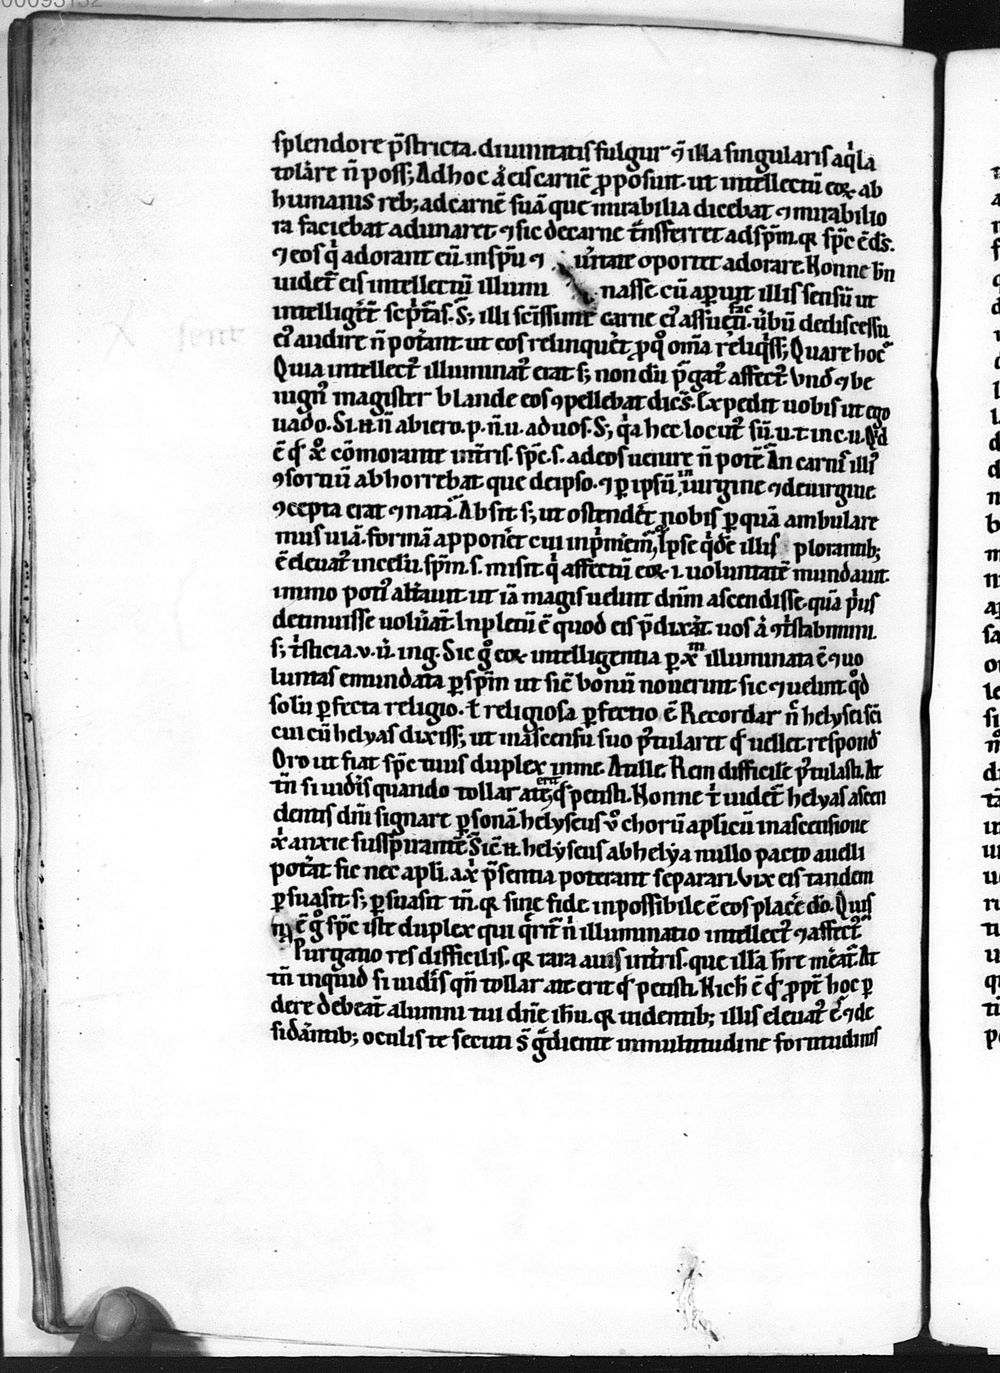 splendore p̄stricta. diuinitatis fulgur ⁊ illa singularis aq̇la
tolāre n̄ poss; Ad hoc ā eis carnē p̱posuit. ut intellectū eoꝝ ab
humanis reb; ad carnē suā que mirabilia dicebat ⁊ mirabilio
ra faciebat adunaret ⁊ sic de carne t̄nsferret ad sp̄m. qꝛ sp̄c ē d̄s.
⁊ eos q̇ adorant eū. in sp̄u ⁊ ūitate oportet adorare. Nonne b̄n
uidet᷑ eis intellectū illumi nasse. cū aꝑuit illis sensū ut
intelliḡt᷑ sc̄pt̄as. S; illi sc̄issimi carne ei᷒ assueti. ūbū dediscessu
ei᷒ audire n̄ pot̄ant ut eos relinquēt ꝓ q̊ om̄a reliq̇ss; Quare hoc᷒
Quia intellect᷒ illuminat᷒ erat s; non dū p̄gat᷒ affect᷒ Vnd̄ ⁊ be
nign᷒ magister blande eos ꝯpellebat dic̄s. Expedit uobis ut ego
uado. Si. n. n̄ abiero. p. n̄. u. ad uos. S; q̇a hec locut᷒ sū. u. t. inc. u. Q̇d
ē qđ x̄ cōmorante in t̄ris. sp̄c. s. ad eos uenire n̄ potē. An carnis illi᷒
ꝯsortiū abhorrebat que de ipso. ⁊ ꝑ ipsū in uirgine ⁊ de uirgine
ꝯcepta erat ⁊ nata. Absit s; ut ostendēt nobis ꝑ quā ambulare
mus uiā. formā apponēt cui inp̄m̄em᷒. Ipse q̇de illis plorantib;
ē eleuat᷒ in celū. sp̄m. s. misit. q̇ affectū eoꝝ .i. uoluntatē mundauit.
immo poti᷒ alt̄auit ut iā magis uelint dn̄m ascendisse. quā ṗus
detinuisse uolūat. Inpletū ē quod eis p̄dixāt. uos ā ꝯt̄stabimini.
s; t̄sticia. v. ū. in g. Sic g̊ eoꝝ intelligentia ꝑ x̄m illuminata ē ⁊ uo
luntas emundata ꝑ sp̄m ut sic bonū nouerint sic ⁊ uelint q̊d
solū ꝑfecta religio. ł religiosa ꝑfectio ē Recordar n̄ helysei sc̄i
cui cū helyas dixiss; ut in ascensu suo p᷒tularet qđ uellet. respond̄
Oro ut fiat sp̄c tuus duplex in me. At ille. Rem difficile p᷒tulasti. At
tn̄ si uid̄is quando tollar a te erit qđ petisti. Nonne t̄ uidet᷑ helyas ascen
dentis dn̄i signare ꝑsonā. helyseus v̊ chorū aplicū in ascensione
x̄ anxie suspirantē. Sic n. helyseus ab helya nullo pacto auelli
pot̄at sic nec apl̄i. a x̄ p̄sentia poterant separari. Vix eis tandem
ꝑsuasit s; ꝑsuasit tn̄. qꝛ sine fide inpossibile ē eos placē do. Quis
ē g̊ sp̄c iste duplex qui q̇rit᷑ n̄ illuminatio intellect᷒ ⁊ affect᷒
Purgatio res difficilis. qꝛ rara auis in t̄ris. que illā h̄re m̄eat᷑ At
tn̄ inquid si uid̄is qn̄ tollar a te erit qđ petisti. Nich̄ ē qđ ꝓpt̄ hoc ꝑ
dere debeāt alumni tui dn̄e ih̄u. qꝛ uidentib; illis eleuat᷒ es ⁊ de
sid̄antib; oculis te secuti s̄ g̅diente in multitudine fortitudinis